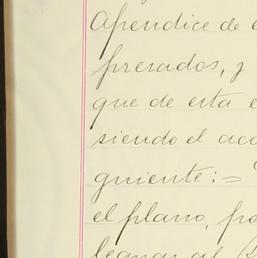 Apendice de e
presados, y
que de esta e
siendo el aco
guiente: =
el plano, pa
llegar al